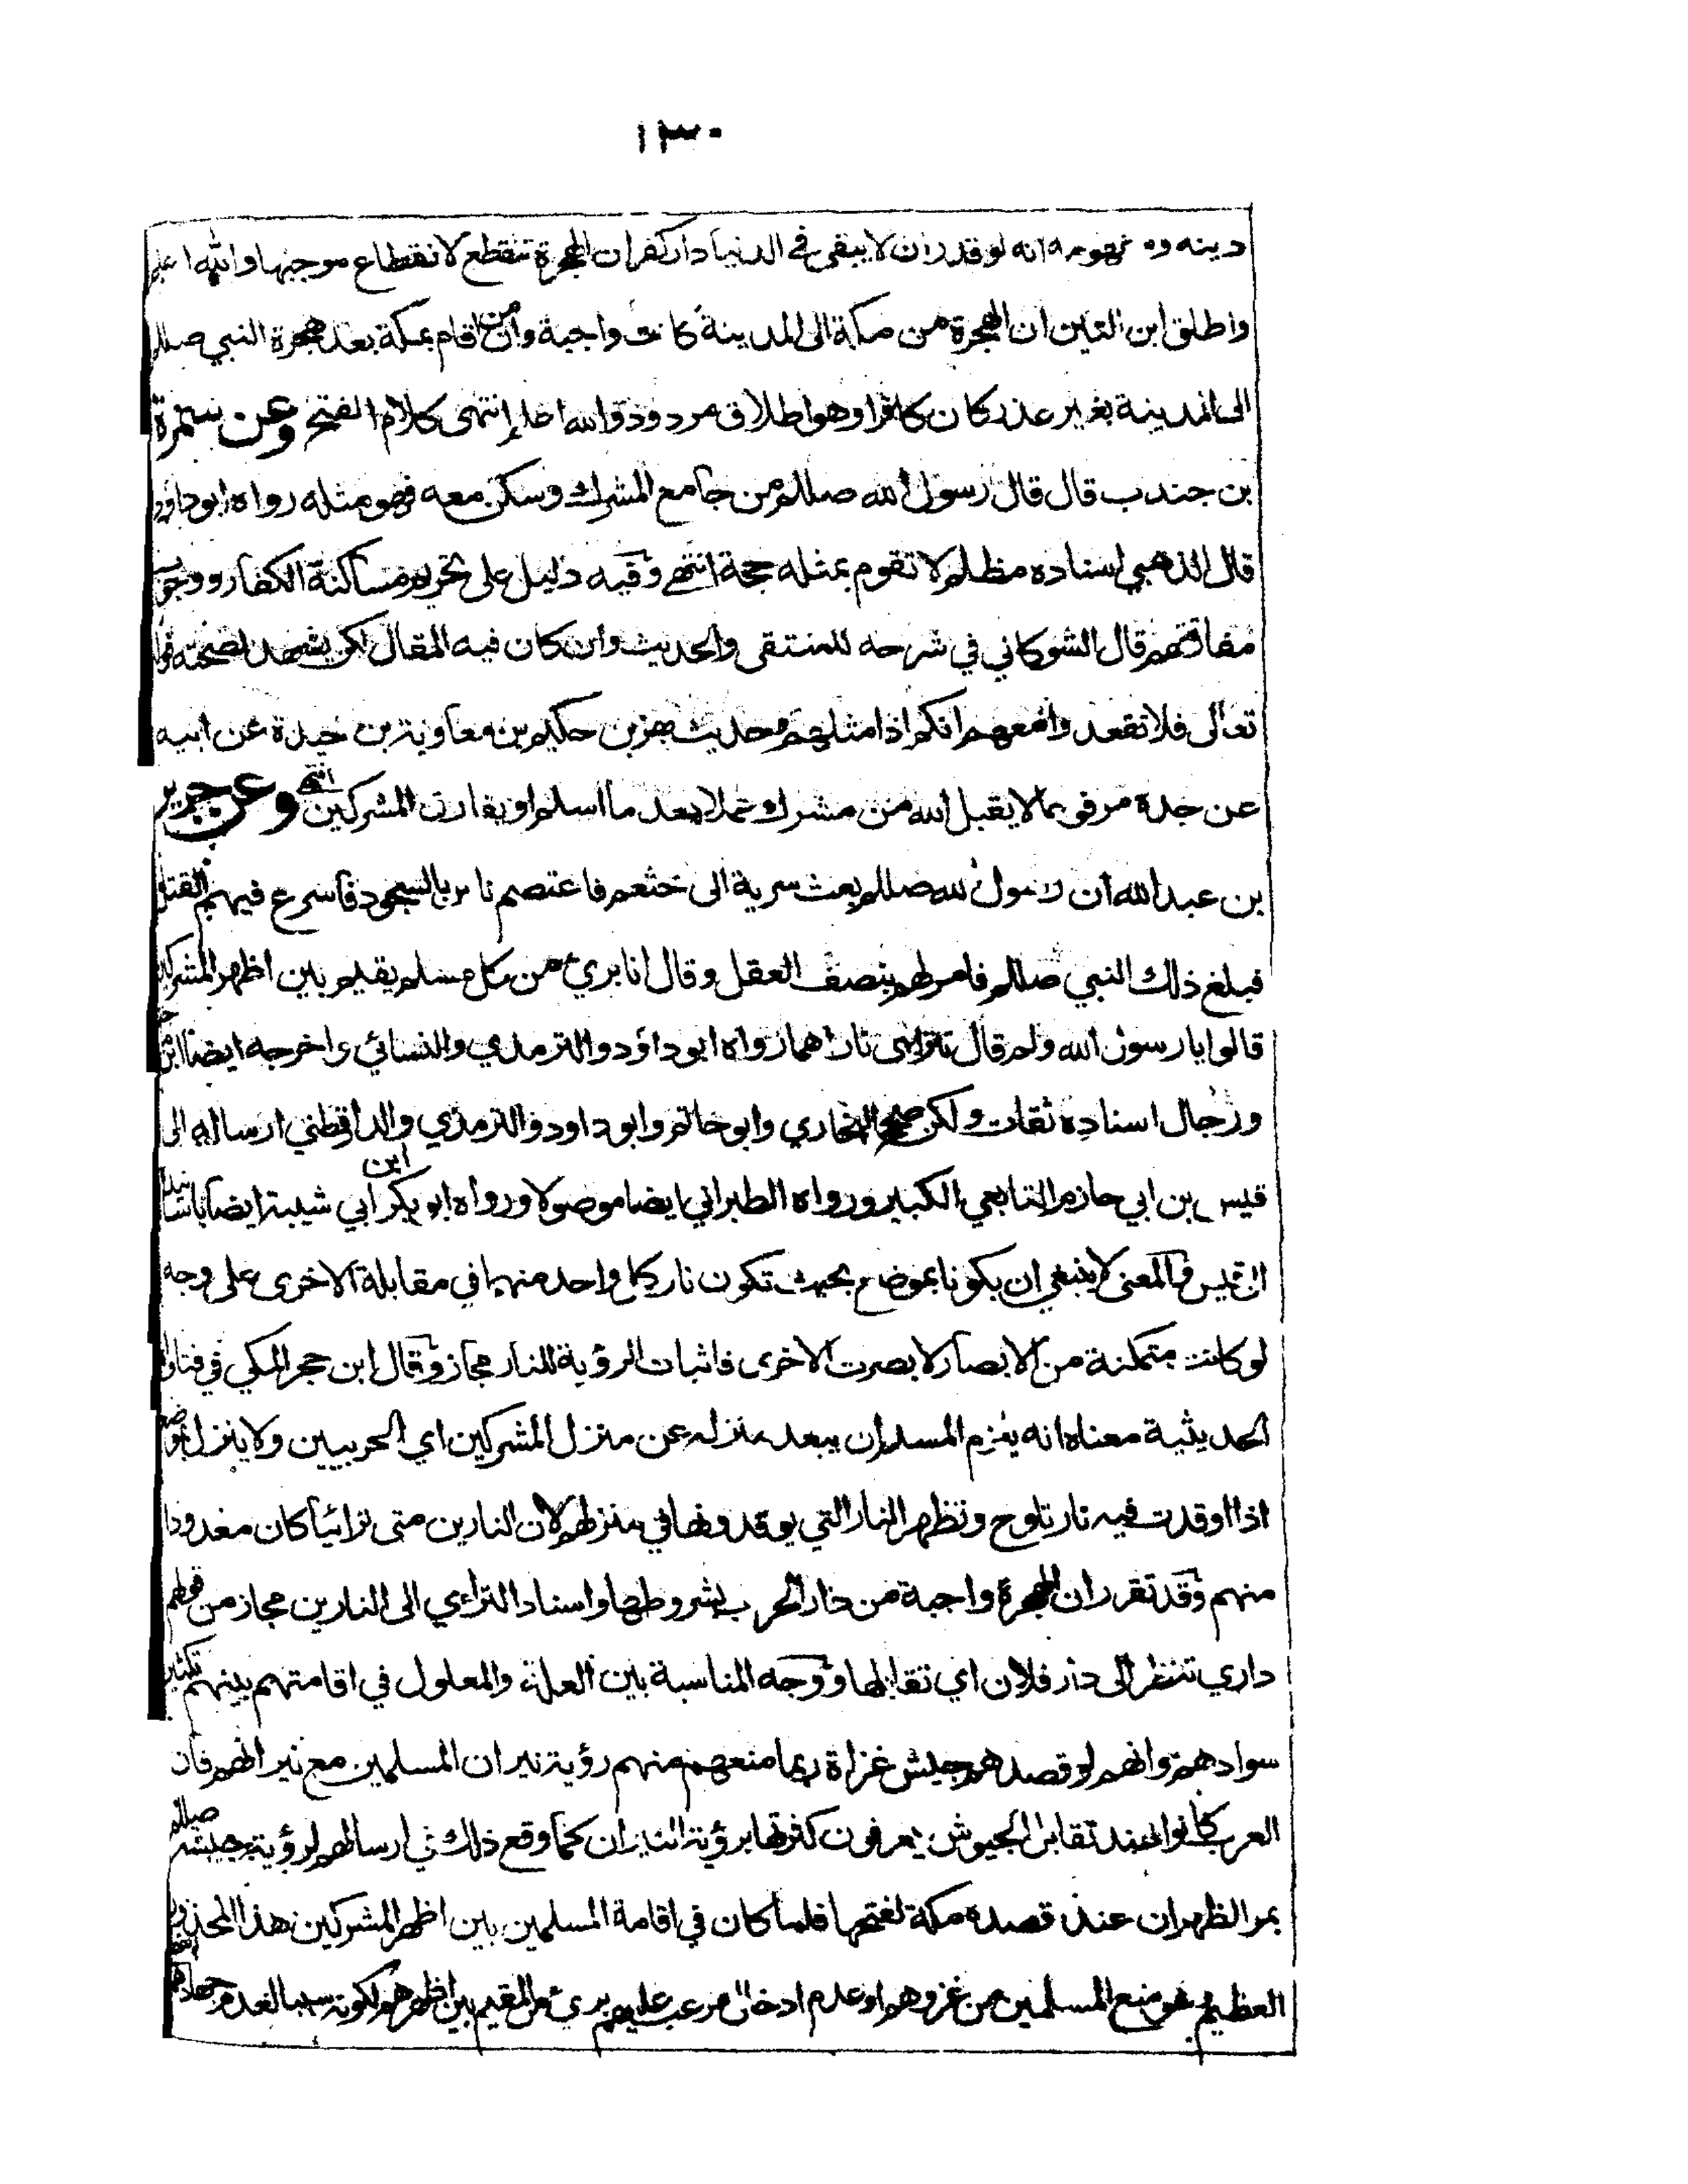 ١٣٠
دينه ومفهومه انه لو قدر ان لا يبقى في الدنيا دار كفر ان الهجرة تنقطع لانقطاع موجبها والله اعلم
واطلق ابن التين ان الهجرة من مكة الى المدينة كانت واجبة وان من اقام بمكة بعد هجرة النبي صللم
الى المدينة بغير عذر كان كافرا وهو اطلاق مردود والله اعلم انتهى كلام الفتح وعن سمرة
بن جندب قال قال رسول الله صللم من جامع المشرك وسكن معه فهو مثله رواه ابو داود
قال الذهبي اسناده مظلم لا تقوم بمثله حجة انتهى وفيه دليل على تحريم مساكنة الكفار ووجوب
مفارقتهم قال الشوكاني في شرحه للمنتقى والحديث وان كان فيه المقال لكن يشهد لصحته قوله
تعالى فلا تقعدوا معهم انكم اذا مثلهم وحديث بهز بن حكيم بن معاوية بن حيدة عن ابيه
عن جده مرفوعا لا يقبل الله من مشرك عملا بعد ما اسلم او يفارق المشركين انتهى وعن جرير
بن عبد الله ان رسول الله صللم بعث سرية الى خثعم فاعتصم ناس بالسجود فاسرع فيهم القتل
فبلغ ذلك النبي صللم فامر لهم بنصف العقل وقال انا بريء من كل مسلم يقيم بين اظهر المشركين
قالوا يا رسول الله ولم قال لا تترااى ناراهما رواه ابو داود والترمذي والنسائي واخرجه ايضا ابن ماجه
ورجال اسناده ثقات ولكن صحح البخاري وابو حاتم وابو داود والترمذي والدارقطني ارساله الى
قيس بن ابي حازم التابعي الكبير ورواه الطبراني ايضا موصولا ورواه ابو بكر ابن ابي شيبة ايضا باسناد
ابن قيس والمعنى لا ينبغي ان يكونا بموضع بحيث تكون نار كل واحد منهما في مقابلة الاخرى على وجه
لو كانت متمكنة من الابصار لابصرت الاخرى فاثبات الرؤية للنار مجاز وقال ابن حجر المكي في فتاواه
الحديثية معناه انه يلزم المسلم ان يبعد منزله عن منزل المشركين اي الحربيين ولا ينزل بموضع
اذا اوقدت فيه نار تلوح وتظهر النار التي يوقدونها في منزلهم لان النارين متى ترائيا كان معدودا
منهم وقد تقرر ان الهجرة واجبة من دار الحرب بشروطها واسناد الترائي الى النارين مجاز من قولهم
داري تنظر الى دار فلان اي تقابلها ووجه المناسبة بين العلة والمعلول في اقامتهم بينهم تكثير
سوادهم وانهم لو قصدهم جيش غزاة ربما منعهم منهم رؤية نيران المسلمين مع نيرانهم فان
العرب كانوا عند تقابل الجيوش يعرفون كثرتها برؤية النيران كما وقع ذلك في ارسالهم لرؤية جيشه صللم
بمر الظهران عند قصده مكة لفتحها فلما كان في اقامة المسلمين بين اظهر المشركين هذا المحذور
العظيم هو منع المسلمين من غزوهم او عدم ادخال مرعب عليهم بريء من المقيم بين اظهرهم لكونه سببا لعدم جهادهم